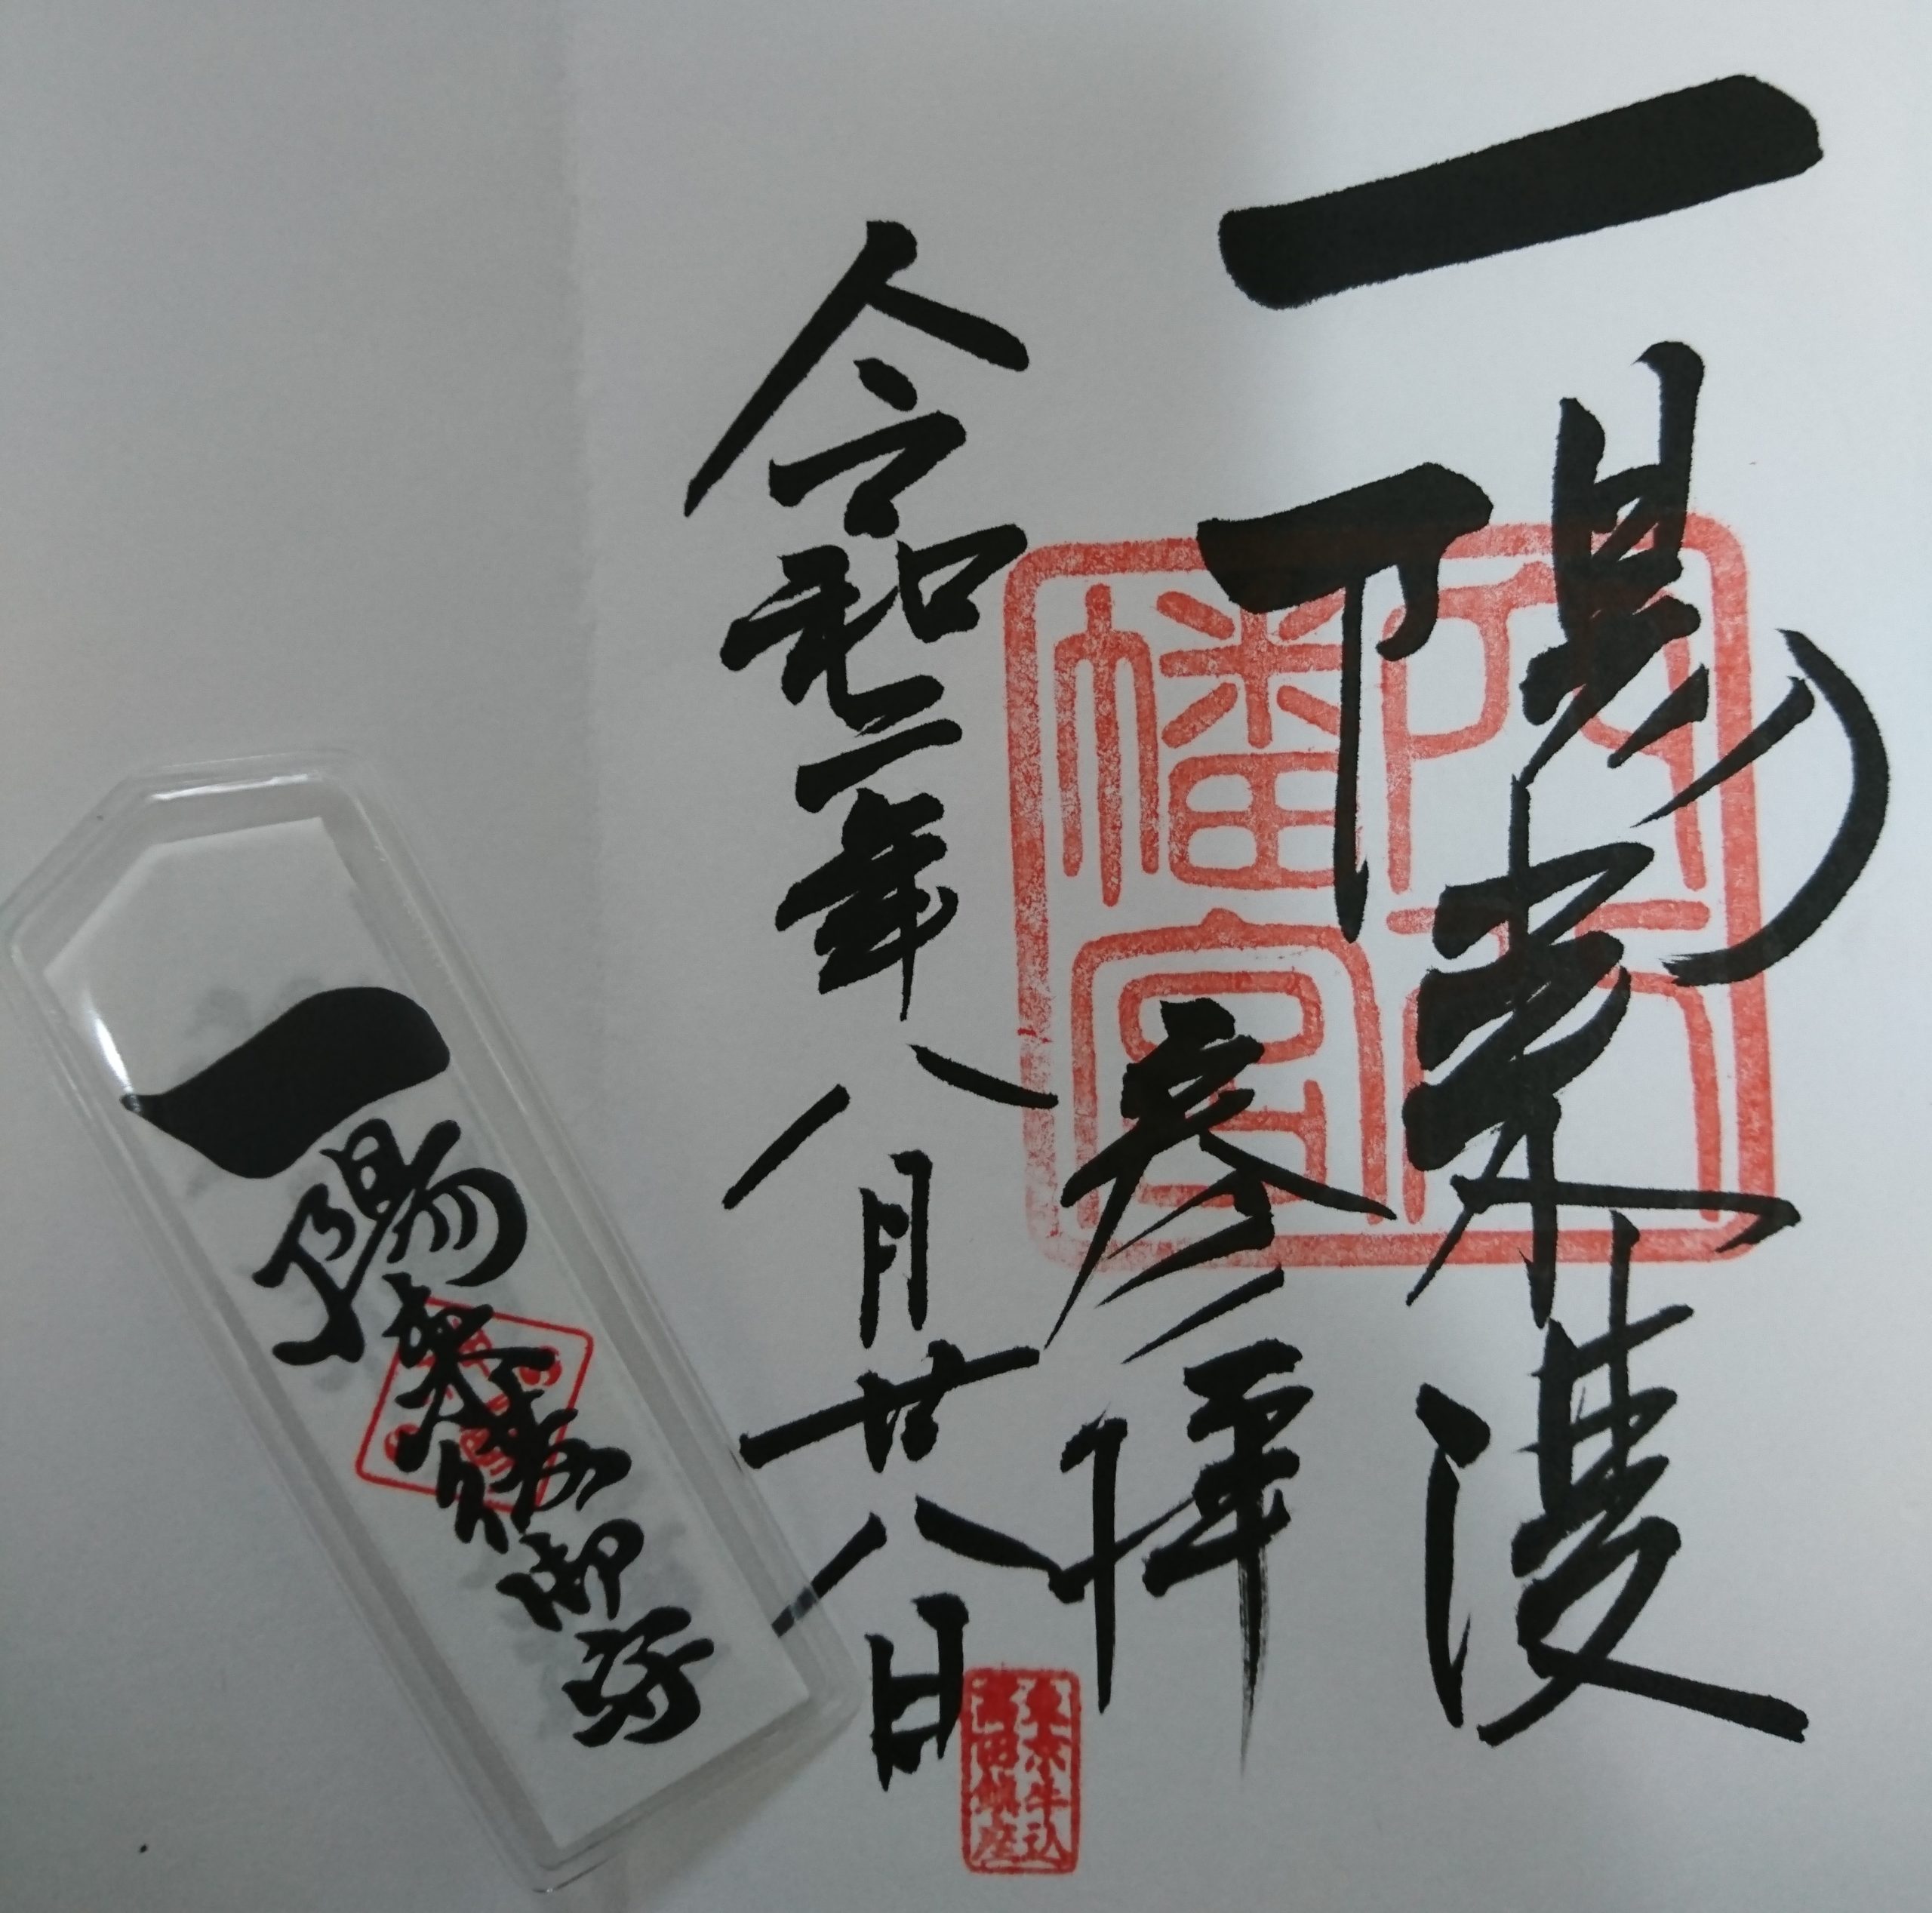 一陽来復
穴八
幡宮
参拝
令和二年八月廿八日
東京牛込
高田鎮座
一陽来復御守